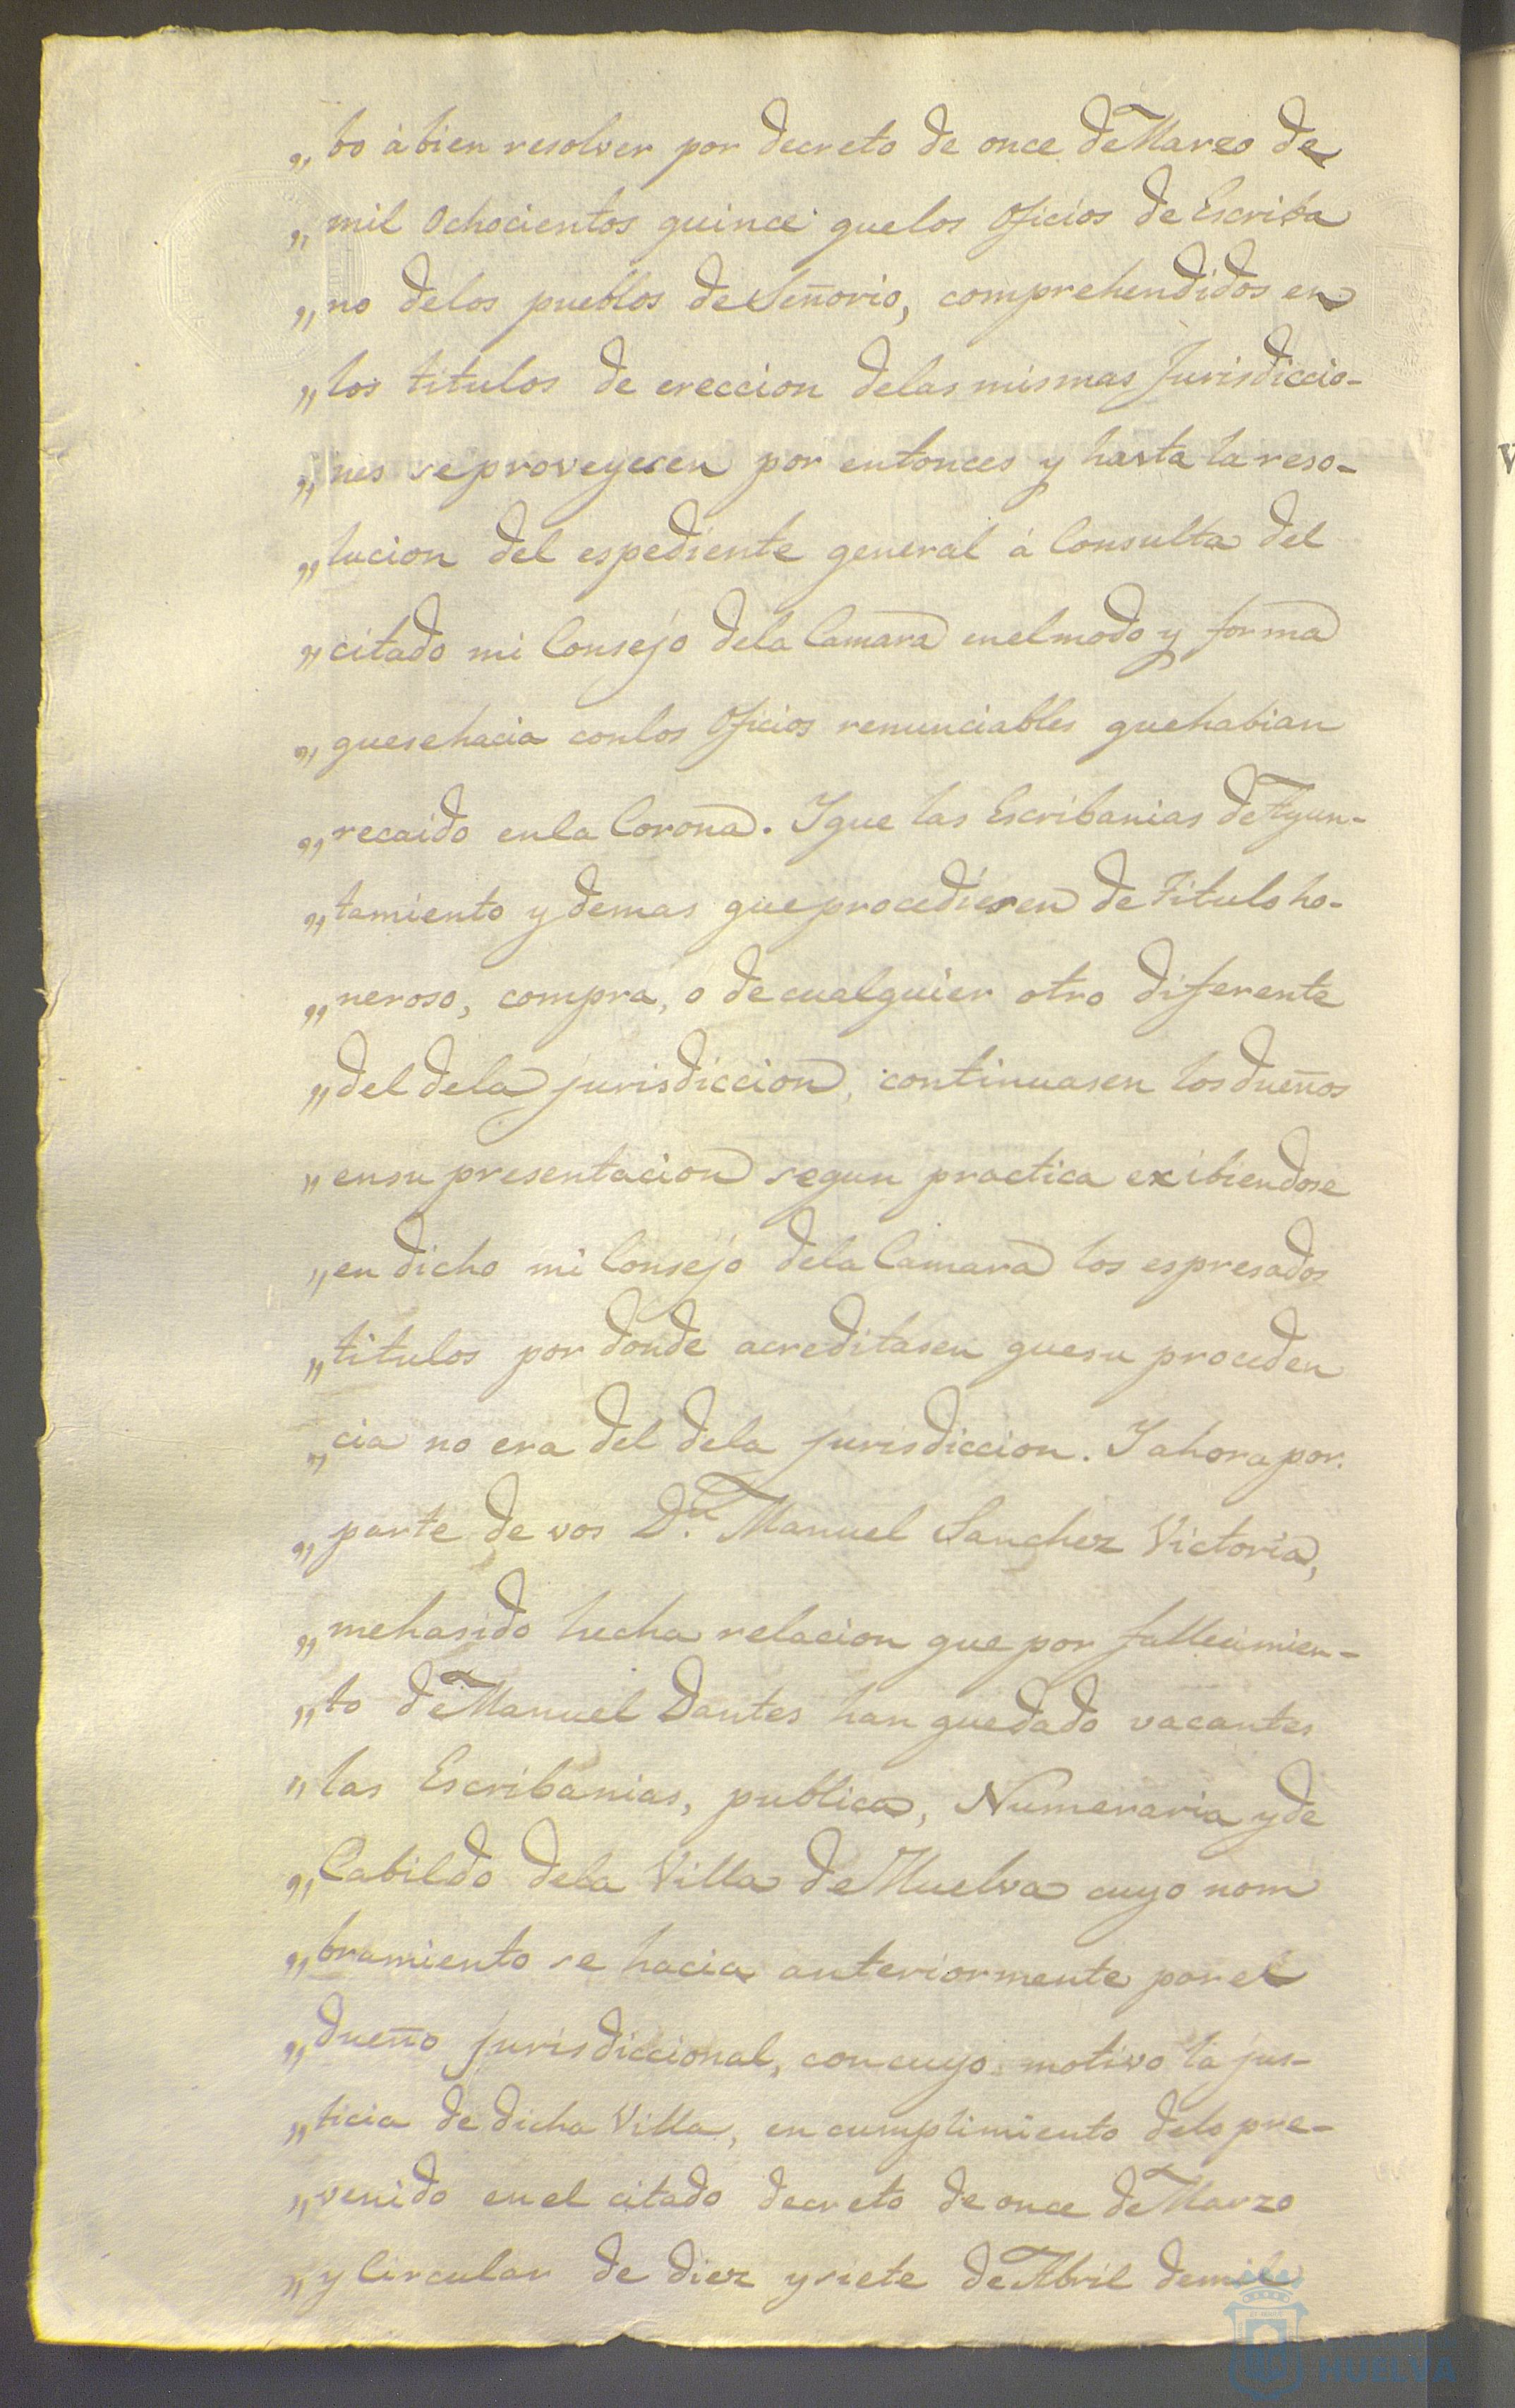 „bo á bien resolver por decreto de once de Marzo de
„mil Ochocientos quince que los Oficios de Escriba
„no delos pueblos de Señorio, comprehendidos en
„los titulos de ereccion delas mismas Jurisdiccio-
„nes se proveyesen por entonces y hasta la reso-
„lucion del espediente general á Consulta del
„citado mi Consejo dela Camara en el modo y forma
„que se hacia con los Oficios renunciables que habian
„recaido en la Corona. Y que las Escribanias de Ayun-
„tamiento y demas que procediesen de Titulo ho-
„neroso, compra, o de cualquier otro diferente
„del dela jurisdiccion, continuasen los dueños
„en su presentacion segun practica exibiendose
„en dicho mi Consejo dela Camara los espresados
„titulos por donde acreditasen que su proceden
„cia no era del dela jurisdiccion. Y ahora por
„parte de vos D.n Manuel Sanchez Victoria,
„me ha sido hecha relacion que por fallecimien-
„to de Manuel Dantes han quedado vacantes
„las Escribanias, publica, Numeraria y de
„Cabildo dela Villa de Huelva cuyo nom
„bramiento se hacia anteriormente por el
„dueño jurisdiccional, con cuyo motivo la jus-
„ticia de dicha Villa, en cumplimiento delo pre-
„venido en el citado decreto de once de Marzo
„y Circular de diez y siete de Abril de mil
HUELVA